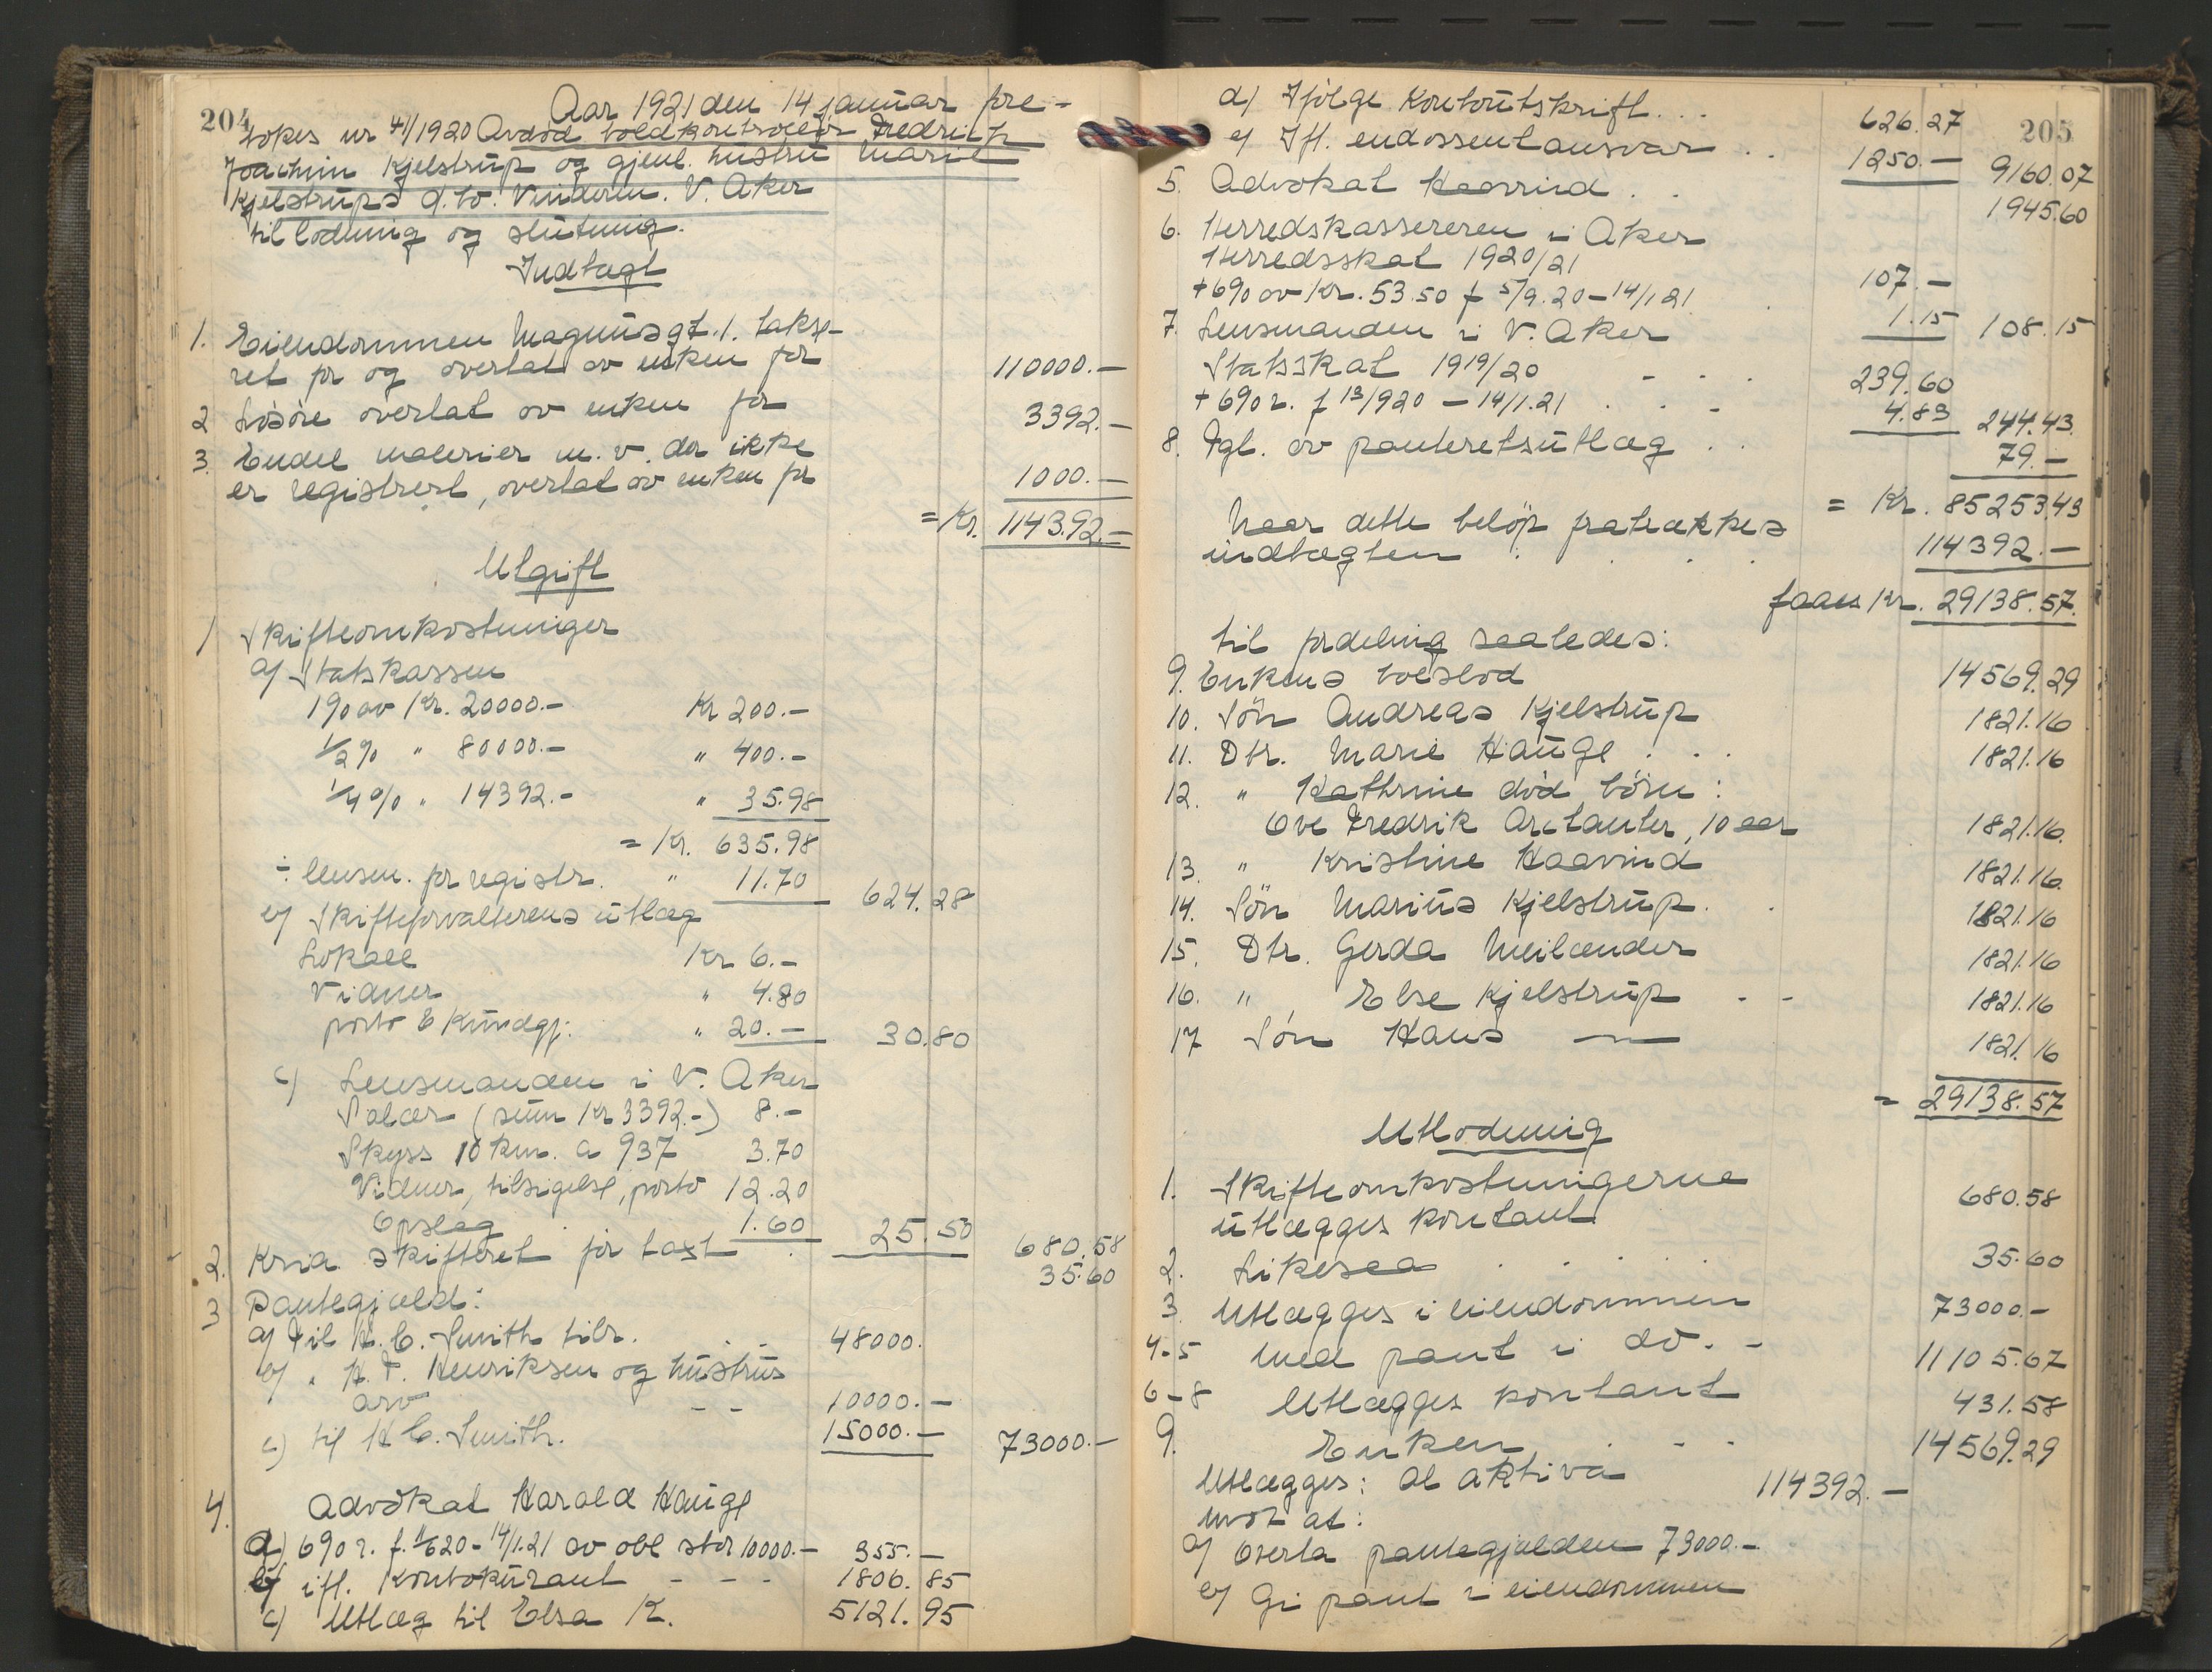 204
Aar 1921 den 14 januar fore-
tokes nr 41/1920 Avdöd toldkontrollör Fredrich
Joachim Kjelstrup og gjenl. hustru Marie
Kjelstrups d.bo. Vinderen. V. Aker
til lodning og slutning.
Indtægt
1. Eiendommen Magnusgt. 1. takse-
ret for og overtat av enken for 110000.-
2 Lösöre overtat av enken for 3392.-
3. Endel malerier m. v. der ikke
er registrert, overtat av enken for 1000.-
= Kr. 114392.-
Utgift
1 Skifteomkostninger
a) Statskassen
1% av Kr. 20000.- Kr 200.-
1/2% " 80000.- " 400.-
1/4% " 14392.- " 35.98
= Kr. 635.98
÷ lensm. for registr. " 11.70 624.28
b) Skifteforvalterens utlæg
Lokale Kr 6.-
Vidner " 4.80
porto & Kundgj: " 20.- 30.80
c) Lensmanden i V. Aker
Salær (sum Kr 3392.-) 8.-
Skyss 10 km. a 937 3.70
Vidner, tilsigelse, porto 12.20
Opslag 1.60 25.50 680.58
2. Kria skifteret for takst 35.60
3 Pantegjæld:
a) Til H. C. Smith tilr. 48000.
b) " H. F. Henriksen og hustrus
arv - - 10000.-
c) til H C. Smith. 15000.- 73000.-
4. Advokat Harald Hauge
a) 6% r. f. 11/6 20 - 14/1.21 av obl stor 10000.- 355.-
b) ifl. Kontokurant - - - 1806.85
c) Utlæg til Elsa K. 5121.95
205
d) Ifölge Kontoutskrift . . . 626.27
e) Ifl. endossentansvar . . 1250.- 9160.07
5. Advokat Haavind . . 1945.60
6. Herredskassereren i Aker
Herredsskat 1920/21 107.-
+ 6% av Kr. 53.50 f 5/9.20 - 14/1 21 . 1.15 108.15
7. Lensmanden i V. Aker
Statsskat 1919/20 - . . 239.60
+ 6% r. f 13/920 - 14/1.21 . . - 4.83 244.43
8. Tgl. av panteretsutlæg . . 79.-
= Kr. 85253.43
Naar dette belöp fratrækkes
indtægten . . . . 114392.-
faaes Kr. 29138.57.
til fordeling saaledes:
9. Enkens boeslod 14569.29
10. Sön Andreas Kjelstrup 1821.16
11. Dtr. Marie Hauge . . . 1821.16
12. " Kathrine död börn:
Ove Fredrik Arctander, 10 aar 1821.16.
13. " Kristine Haavind 1821.16.
14. Sön Marius Kjelstrup . . 1821.16
15. Dtr. Gerda Meilænder 1821.16
16. " Else Kjelstrup - - 1821.16
17 Sön Hans —"— 1821.16
= 29138.57
Utlodning
1. Skifteomkostningerne
utlægges kontant 680.58
2. Likesaa . . . 35.60
3 Utlægges i eiendommen 73000.-
4-5 Med pant i do. - 11105.67
6-8 Utlægges kontant 431.58
9. Enken . - - 14569.29
Utlægges: al aktiva 114392.-
mot at:
a) Overta pantegjælden 73000.-
b) Gi pant i eiendommen